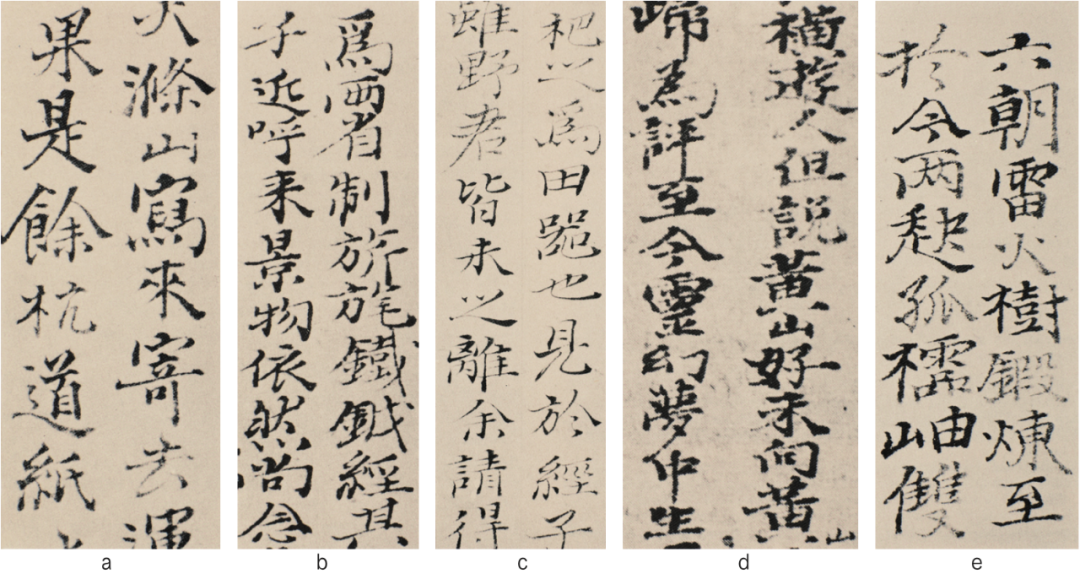 大滌山寫來寄去渾
果是餘杭道紙
a
爲兩省制旂旄鐵鉞經其
子近呼来景物依然尚念
b
耙之爲田器也見於經子
雖野君皆未之離余請得
c
遊人但説黄山好未向黄山
為評至今靈幻夢中生
d
六朝雷火樹鍛煉至
於今两孤檽岫雙
e